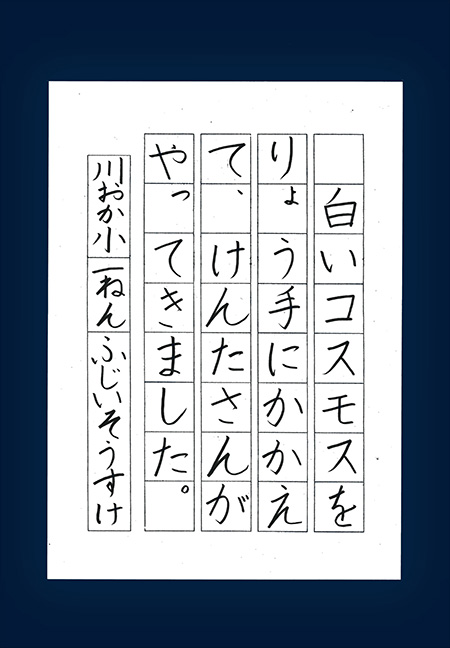 白いコスモスを
りょう手にかかえ
て、けんたさんが
やってきました。
川おか小 一ねん ふじいそうすけ